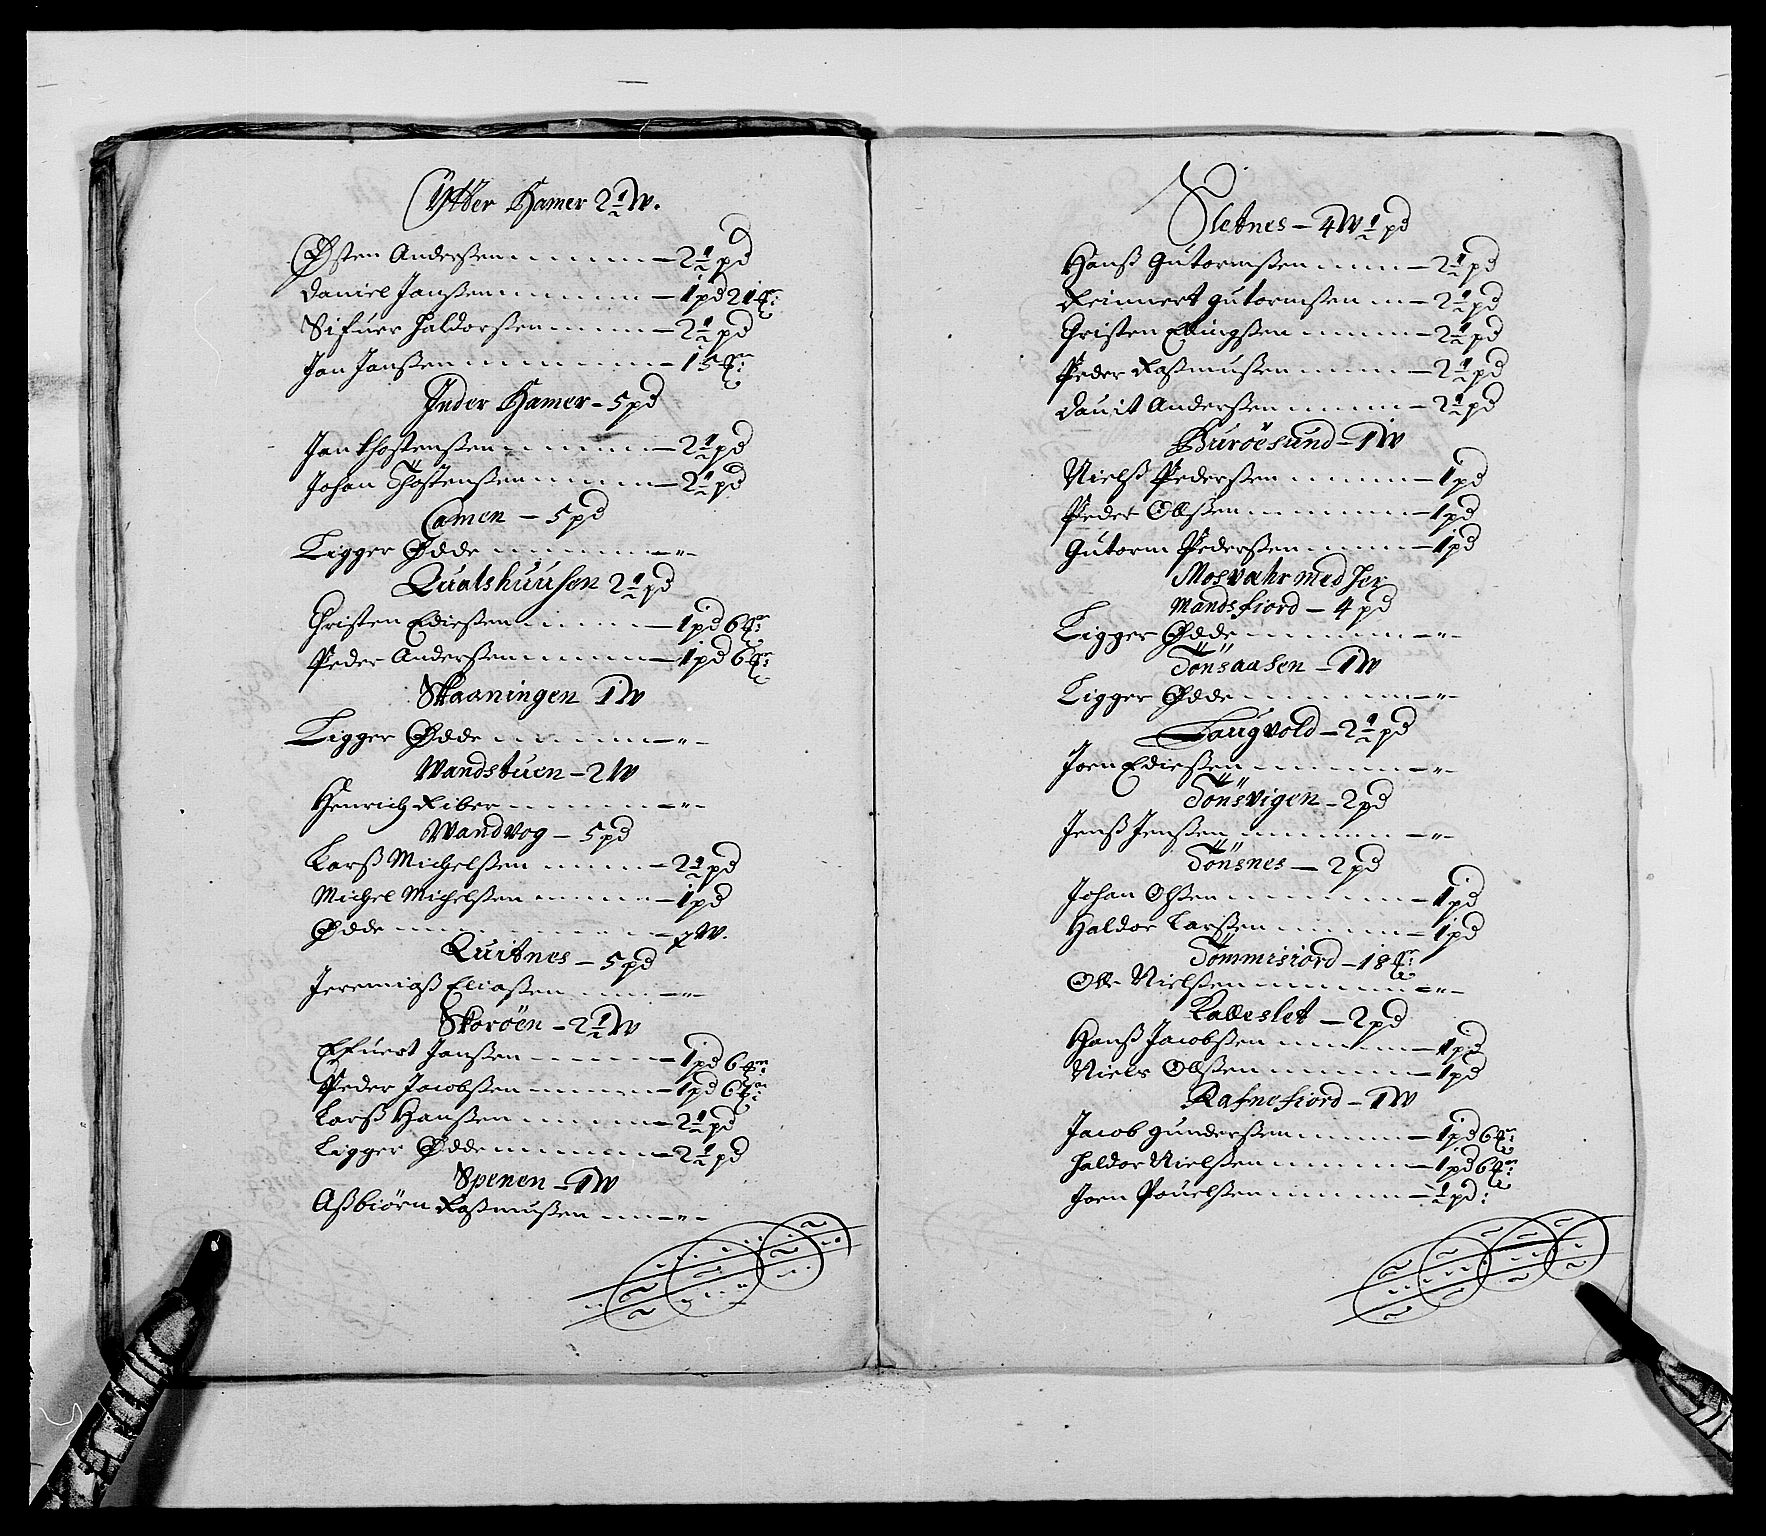 Ytter Hamer 2½ W.
Østen Anderßen - - - - - - 2½ pd
Daniel Janßen - - - - - - 1 pd 21 ℔:
Sifuer Haldorßen - - - - - 2½ pd
Jon Janßen - - - - - - - - 15 ℔:
Inder Hamer - 5 pd
Jon Thostenßen - - - - - - 2½ pd
Johan Thostenßen - - - - - 2½ pd
Camen - 5 pd
Ligger Øede - - - - - - - - " -
Qualshuusen 2½ pd
Christen Edießen - - - - - 1 pd 6 ℔:
Peder Anderßen - - - - - - 1 pd 6 ℔:
Skaaningen 1 W
Ligger Øede - - - - - - - - " -
Wandstuen - 2 W
Henrich Riber - - - - - - - " -
Wandvog - 5 pd
Larß Michelßen - - - - - 2½ pd
Michel Michelßen - - - - - 1 pd
Øede - - - - - - - - - ½ W.
Quitnes - 5 pd
Jeremiaß Eliaßen - - - - - " -
Skorøen - 2½ W
Efuert Janßen - - - - - - 1 pd 6 ℔:
Peder Jacobßen - - - - - - 1 pd 6 ℔:
Larß Hanßen - - - - - - 2½ pd
Ligger Øede - - - - - - - 2½ pd
Spenen - 1 W
Aßbiörn Raßmußen - - - - " -
Sletnes - 4 W ½ pd
Hanß Gutormßen - - - - - 2½ pd
Reinnert Gutormßen - - - 2½ pd
Christen Ellingßen - - - - - 2½ pd
Peder Raßmußen - - - - - 2½ pd
Dauit Anderßen - - - - - - 2½ pd
Buröesund - 1 W
Nielß Pederßen - - - - - - 1 pd
Peder Olßen - - - - - - - - 1 pd
Gutorm Pederßen - - - - - 1 pd
Mosvahr med Her
mandsfiord - 4 pd
Ligger Øede - - - - - - - - " -
Tönsaasen - 1 W
Ligger Øede - - - - - - - - " -
Laugvold - 2½ pd
Joen Edießen - - - - - - - - " -
Tönsvigen - 2 pd
Jenß Jenßen - - - - - - - - " -
Tönsnes - 2 pd
Johan Olßen - - - - - - - - 1 pd
Haldor Larßen - - - - - - 1 pd
Tömmisiord - 18 ℔:
Olle Nielßen - - - - - - - - " -
Kalleslet - 2 pd
Hanß Jacobßen - - - - - - 1 pd
Niels Olßen - - - - - - - - 1 pd
Rafnefiord - 1 W
Jacob Gunderßen - - - - - 1 pd 6 ℔:
Haldor Nielßen - - - - - - 1 pd 6 ℔:
Joen Pouelßen - - - - - - ½ pd: